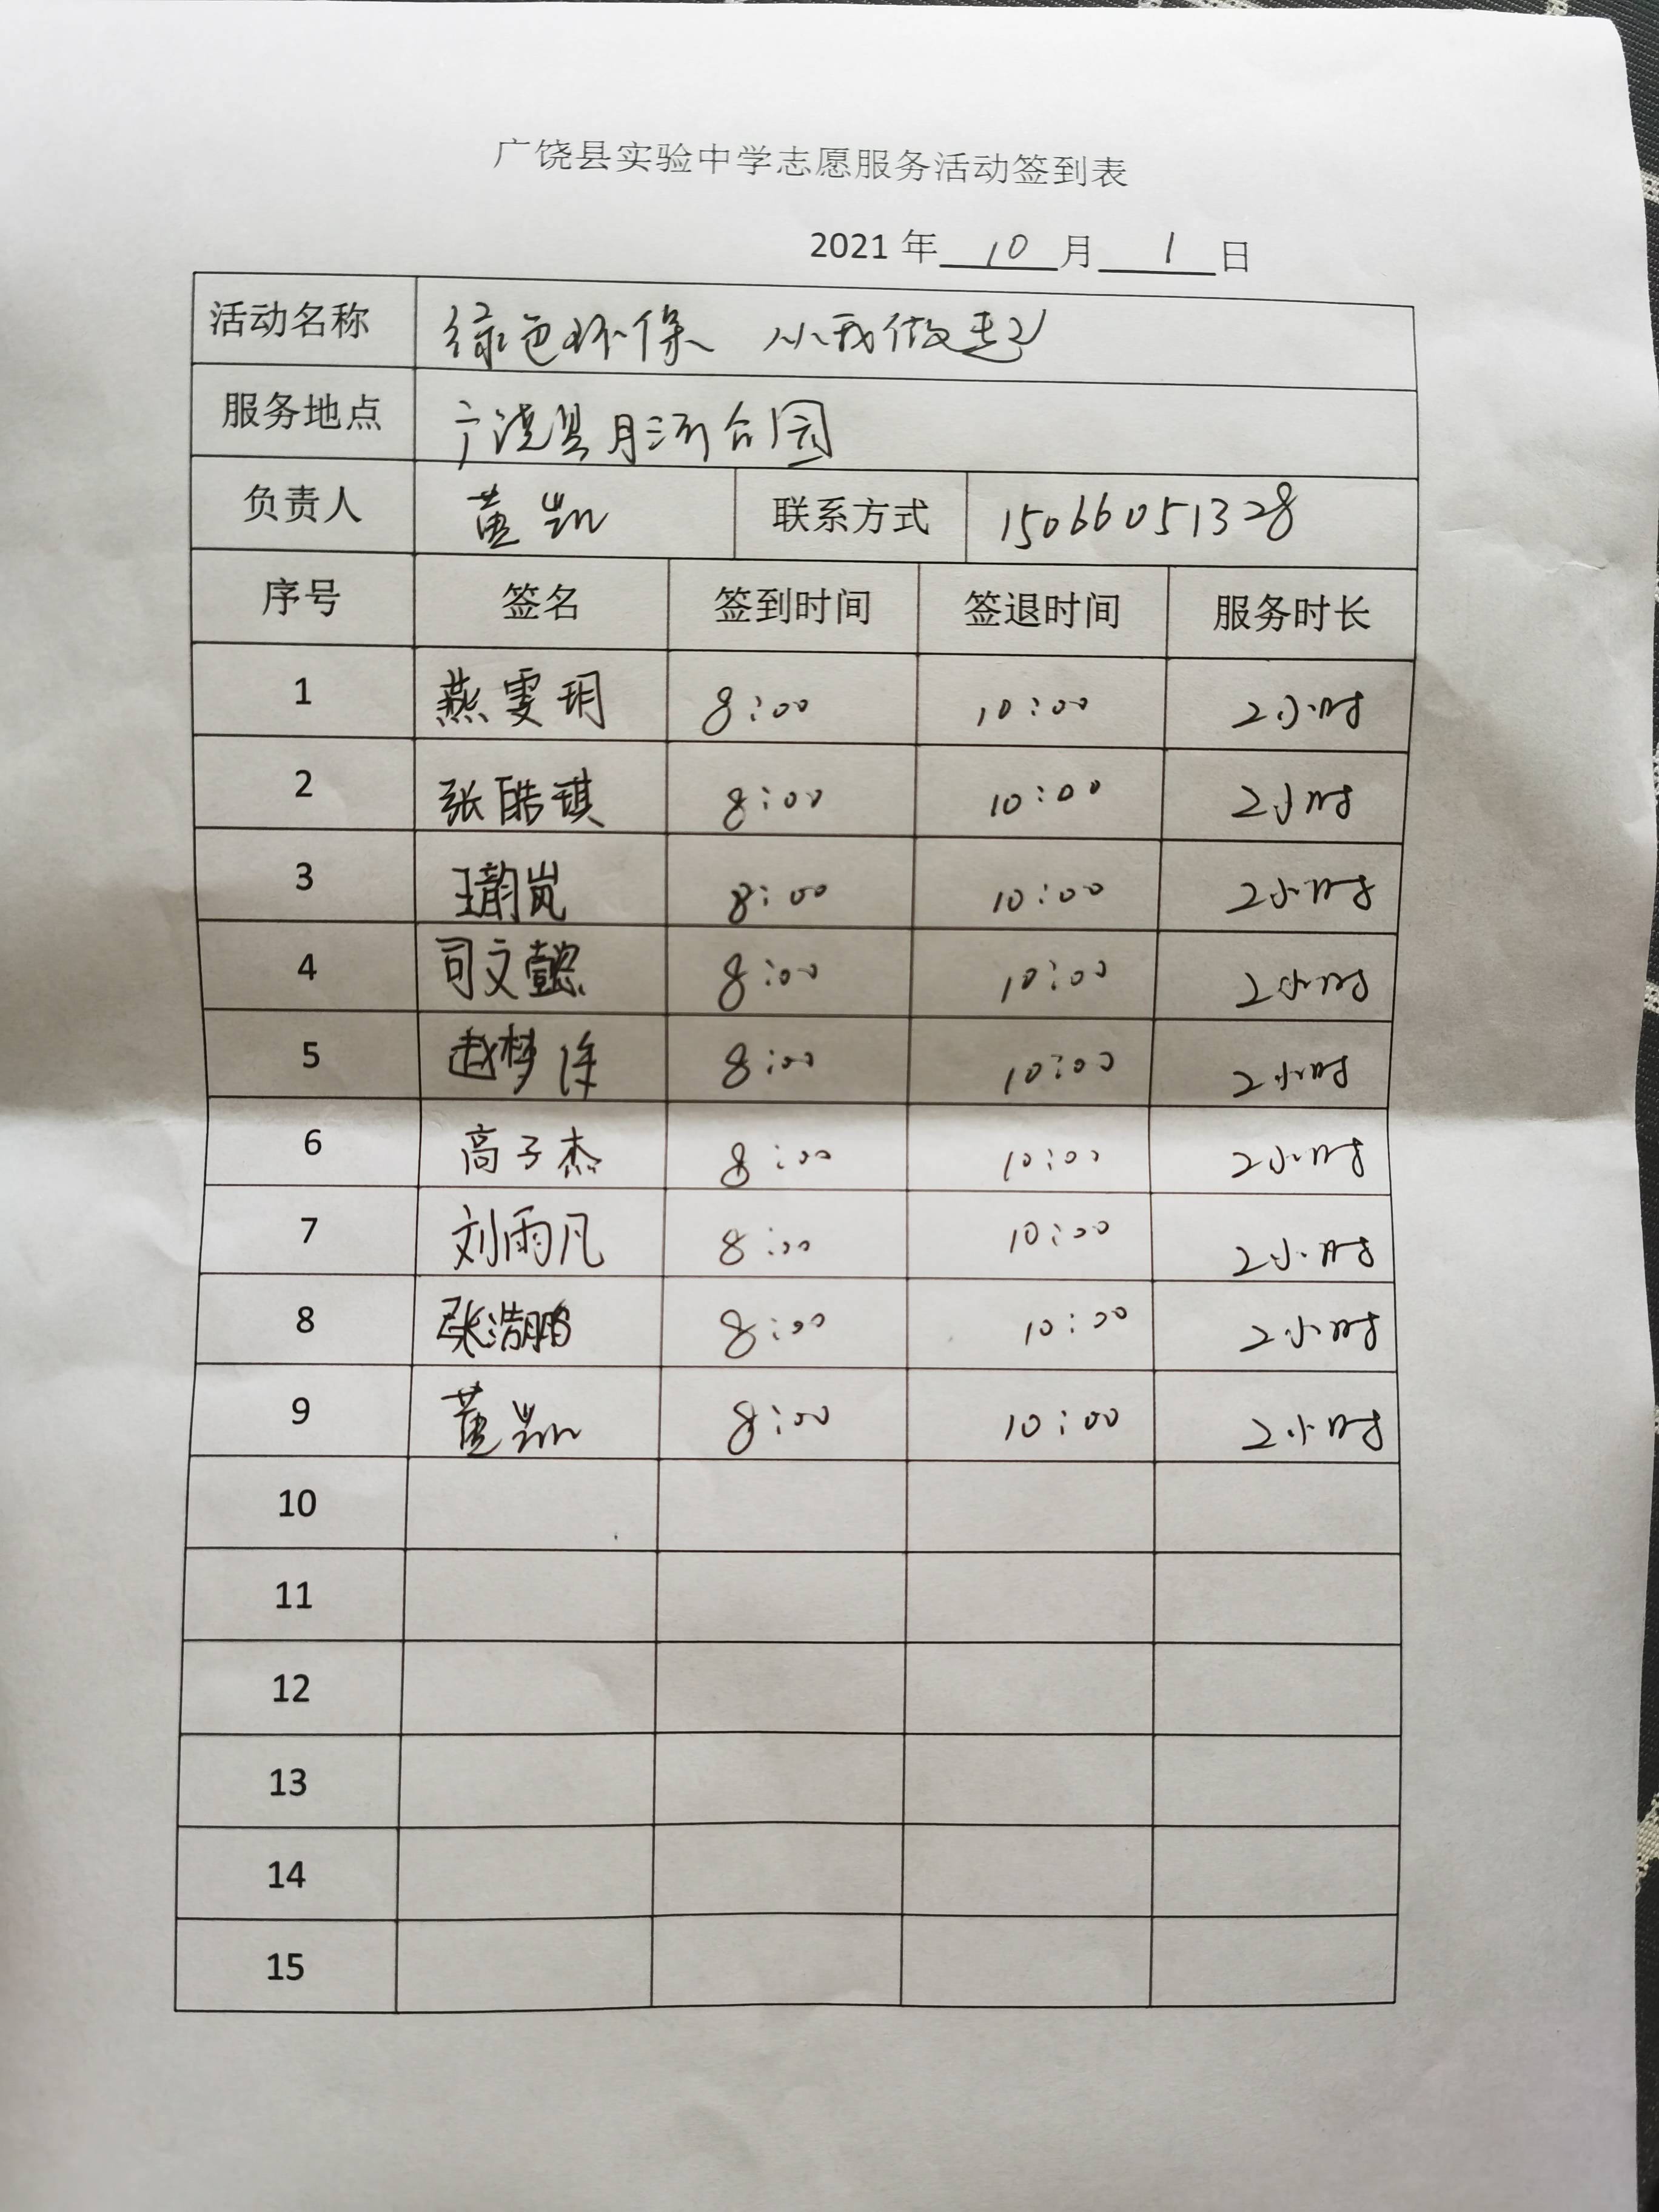 广饶县实验中学志愿服务活动签到表
2021 年 10 月 1 日
活动名称 绿色环保 从我做起
服务地点 广饶县月河公园
负责人 黄凯 联系方式 15066051328
序号 签名 签到时间 签退时间 服务时长
1 燕雯玥 8:00 10:00 2小时
2 张皓琪 8:00 10:00 2小时
3 王韵岚 8:00 10:00 2小时
4 司文懿 8:00 10:00 2小时
5 赵梦 8:00 10:00 2小时
6 高子杰 8:00 10:00 2小时
7 刘雨凡 8:00 10:00 2小时
8 张浩鹏 8:00 10:00 2小时
9 黄凯 8:00 10:00 2小时
10
11
12
13
14
15